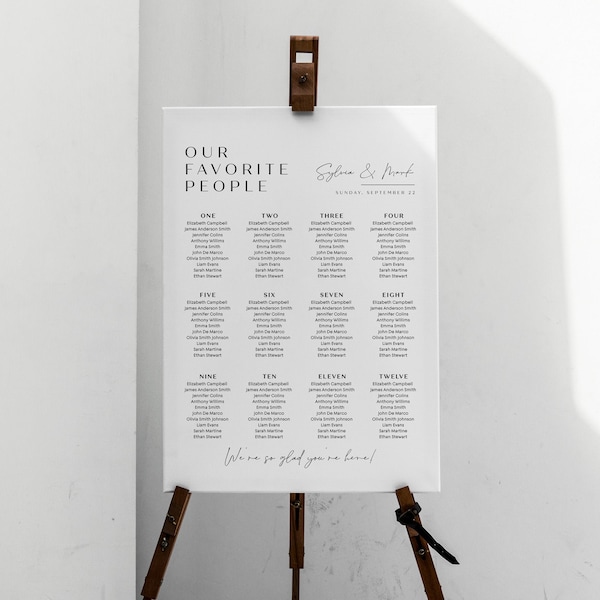 OUR
FAVORITE
PEOPLE
Sylvia & Mark
SUNDAY, SEPTEMBER 22
ONE
Elizabeth Campbell
James Anderson Smith
Jennifer Collins
Anthony Willims
Emma Smith
John De Marco
Olivia Smith Johnson
Liam Evans
Sarah Martine
Ethan Stewart
TWO
Elizabeth Campbell
James Anderson Smith
Jennifer Collins
Anthony Willims
Emma Smith
John De Marco
Olivia Smith Johnson
Liam Evans
Sarah Martine
Ethan Stewart
THREE
Elizabeth Campbell
James Anderson Smith
Jennifer Collins
Anthony Willims
Emma Smith
John De Marco
Olivia Smith Johnson
Liam Evans
Sarah Martine
Ethan Stewart
FOUR
Elizabeth Campbell
James Anderson Smith
Jennifer Collins
Anthony Willims
Emma Smith
John De Marco
Olivia Smith Johnson
Liam Evans
Sarah Martine
Ethan Stewart
FIVE
Elizabeth Campbell
James Anderson Smith
Jennifer Collins
Anthony Willims
Emma Smith
John De Marco
Olivia Smith Johnson
Liam Evans
Sarah Martine
Ethan Stewart
SIX
Elizabeth Campbell
James Anderson Smith
Jennifer Collins
Anthony Willims
Emma Smith
John De Marco
Olivia Smith Johnson
Liam Evans
Sarah Martine
Ethan Stewart
SEVEN
Elizabeth Campbell
James Anderson Smith
Jennifer Collins
Anthony Willims
Emma Smith
John De Marco
Olivia Smith Johnson
Liam Evans
Sarah Martine
Ethan Stewart
EIGHT
Elizabeth Campbell
James Anderson Smith
Jennifer Collins
Anthony Willims
Emma Smith
John De Marco
Olivia Smith Johnson
Liam Evans
Sarah Martine
Ethan Stewart
NINE
Elizabeth Campbell
James Anderson Smith
Jennifer Collins
Anthony Willims
Emma Smith
John De Marco
Olivia Smith Johnson
Liam Evans
Sarah Martine
Ethan Stewart
TEN
Elizabeth Campbell
James Anderson Smith
Jennifer Collins
Anthony Willims
Emma Smith
John De Marco
Olivia Smith Johnson
Liam Evans
Sarah Martine
Ethan Stewart
ELEVEN
Elizabeth Campbell
James Anderson Smith
Jennifer Collins
Anthony Willims
Emma Smith
John De Marco
Olivia Smith Johnson
Liam Evans
Sarah Martine
Ethan Stewart
TWELVE
Elizabeth Campbell
James Anderson Smith
Jennifer Collins
Anthony Willims
Emma Smith
John De Marco
Olivia Smith Johnson
Liam Evans
Sarah Martine
Ethan Stewart
We're so glad you're here!